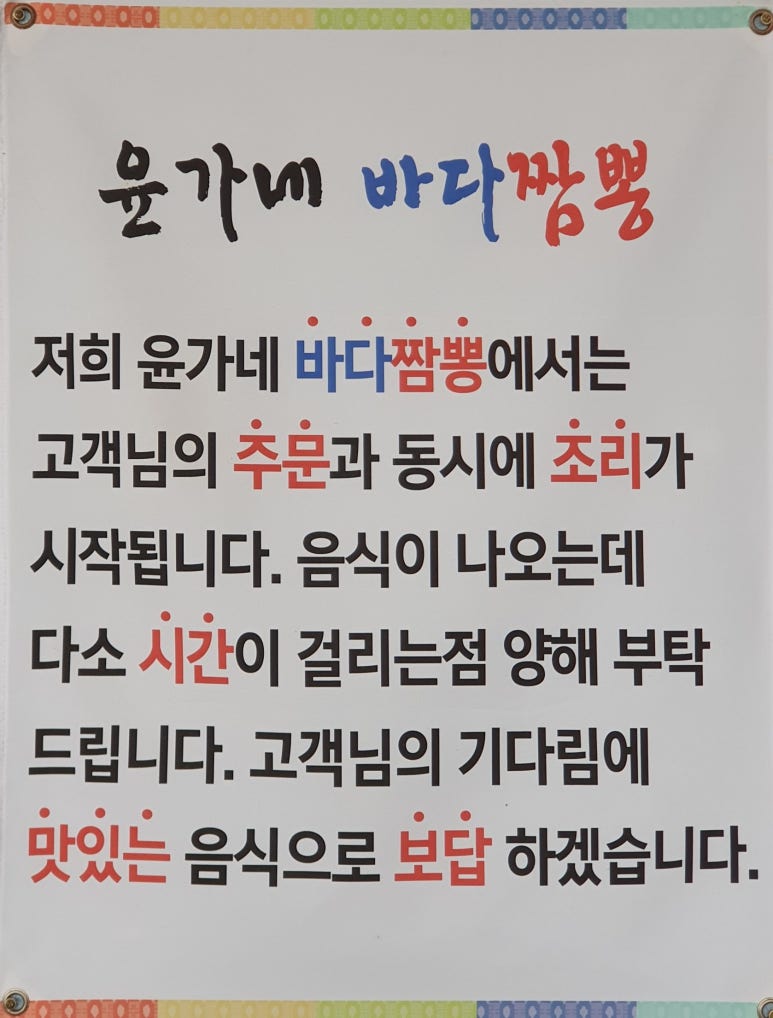 윤가네 바다짬뽕
저희 윤가네 바다짬뽕에서는
고객님의 주문과 동시에 조리가
시작됩니다. 음식이 나오는데
다소 시간이 걸리는점 양해 부탁
드립니다. 고객님의 기다림에
맛있는 음식으로 보답 하겠습니다.